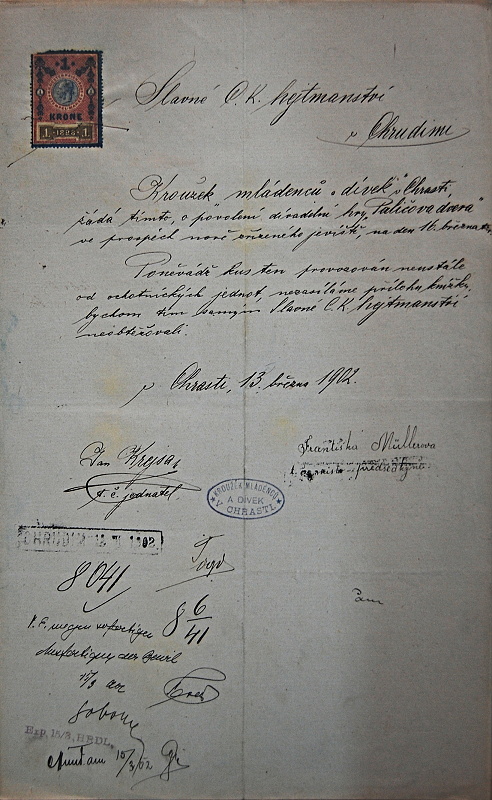 1
KRONE
1 1898 1
Slavné C. K. hejtmanství
v Chrudimi
Kroužek mládenců a dívek v Chrasti
žádá tímto, o povolení divadelní hry "Paličova dcera"
ve prospěch nově zřízeného jeviště, na den 16. března
Poněvádž kus ten provozován neustále
od ochotnických jednot, nezasíláme přílohu knížku,
bychom tím samým Slavné C. K. hejtmanství
neobtěžovali.
v Chrasti, 13. března 1902.
Jan Krejsa
t. č. jednatel
Františka Müllerova
předsedkyně
KROUŽEK MLÁDENCŮ
A DÍVEK
V CHRASTI.
CHRUDIM 1902
8041
8 6/41
wegen
der
15/3
Exp. 15/3, HRDL.
15/3 02